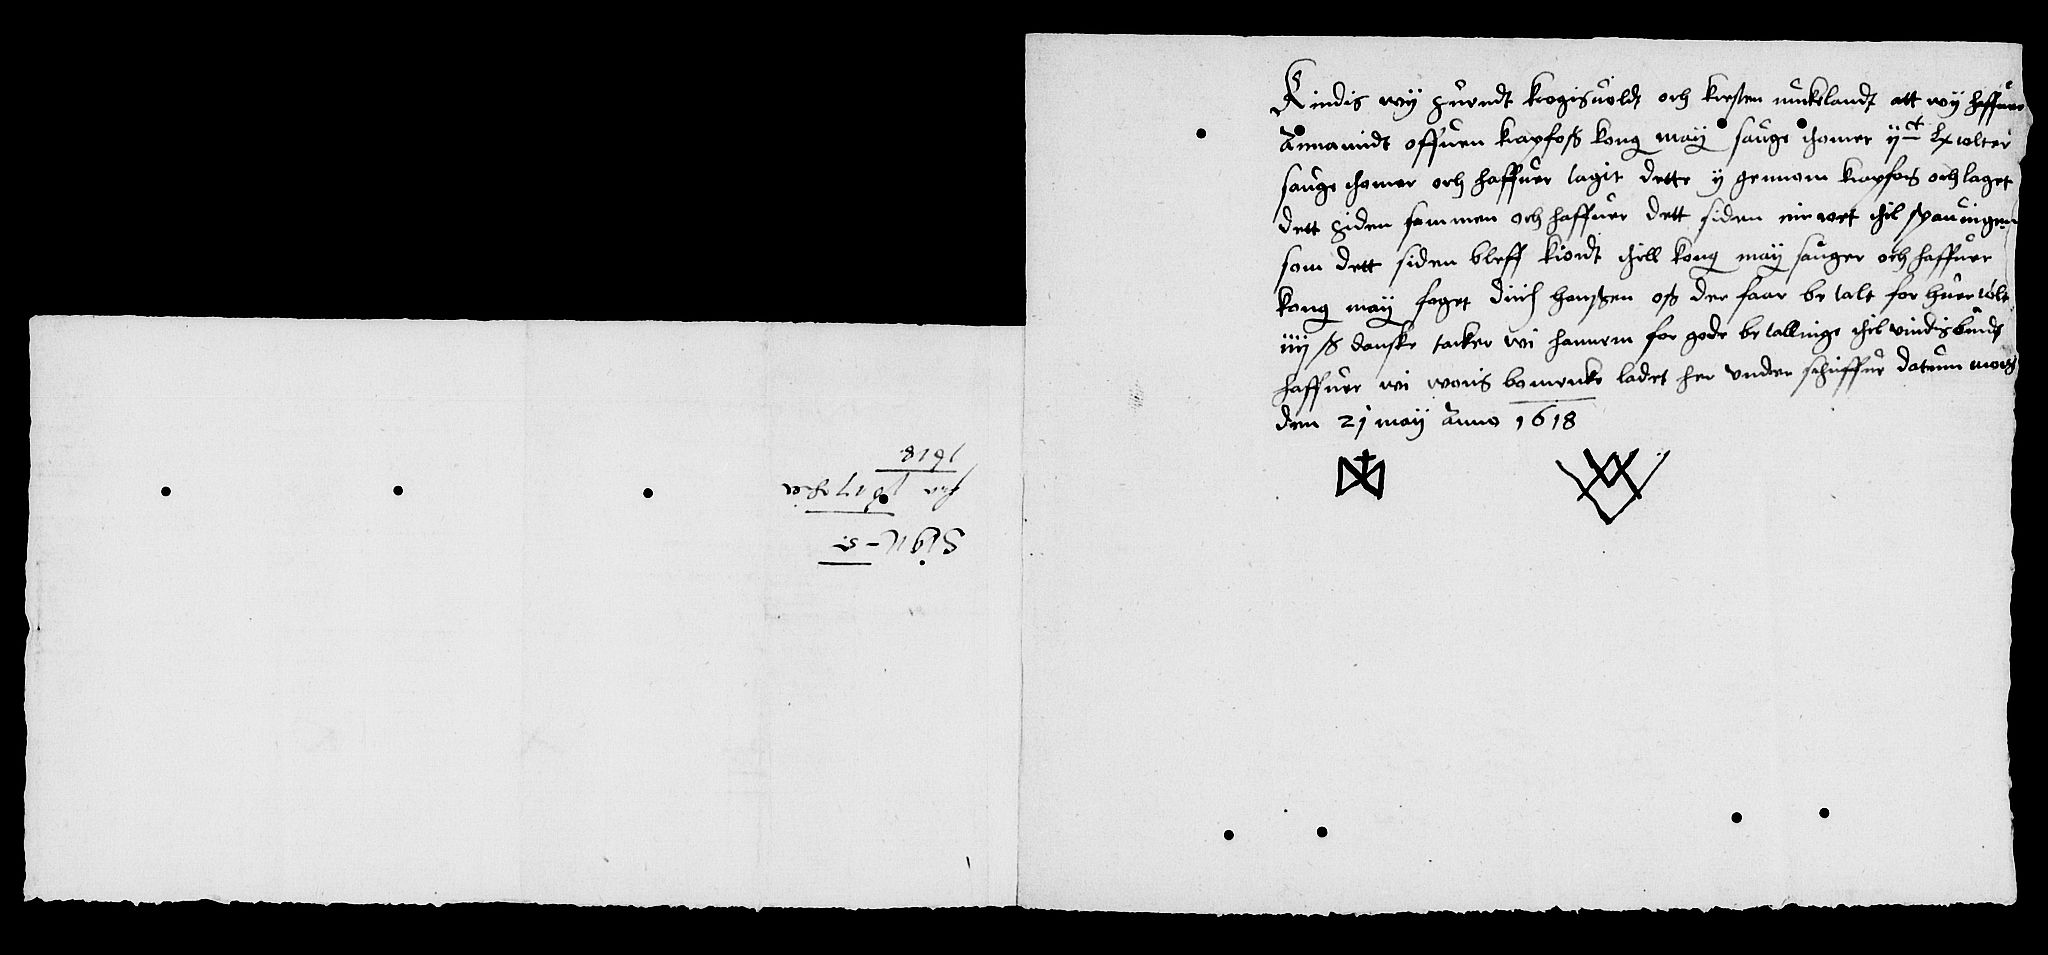 Kindis wÿ suendt krogisuoldt och kresten mickelandt att wÿ haffuer
Annamidt offuen krapfoss kong maÿ sauge thomer ijct Lx tolter
sauge thomer och haffuer lagit dette ÿ gennom krapfoss och laget
dett siden sammen och haffuer dett siden wet thil
som dett siden bleff kiördt thill kong maÿ sauger och haffuer
kong maÿ foget hanssen oss der faar be talt for huer tolt
iiij ss danske tacker wi hannem for gode be tallinge thil vindisbiurd
haffuer wi woris bomercke ladet her under schriffue datum moss
den 21 maÿ Anno 1618
1618
fra 1617